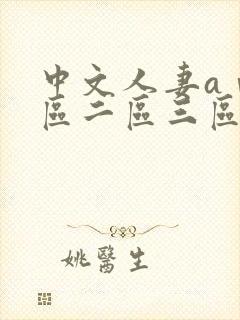 中文人妻a
區二區三區
姚醫生